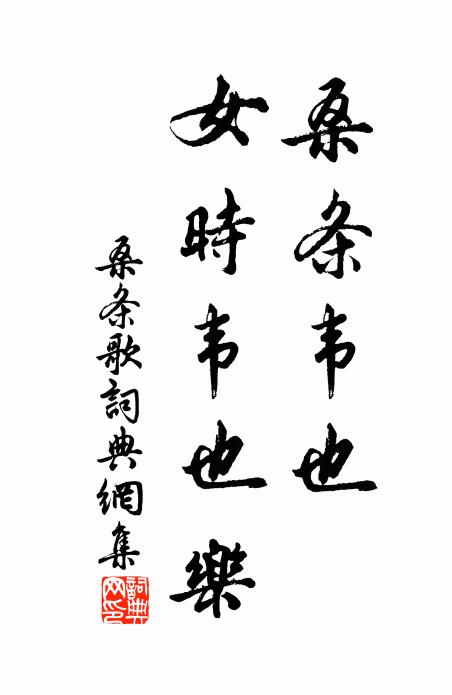 桑条韦也
女時韦也樂
桑条歌詞典網集
詞典网印